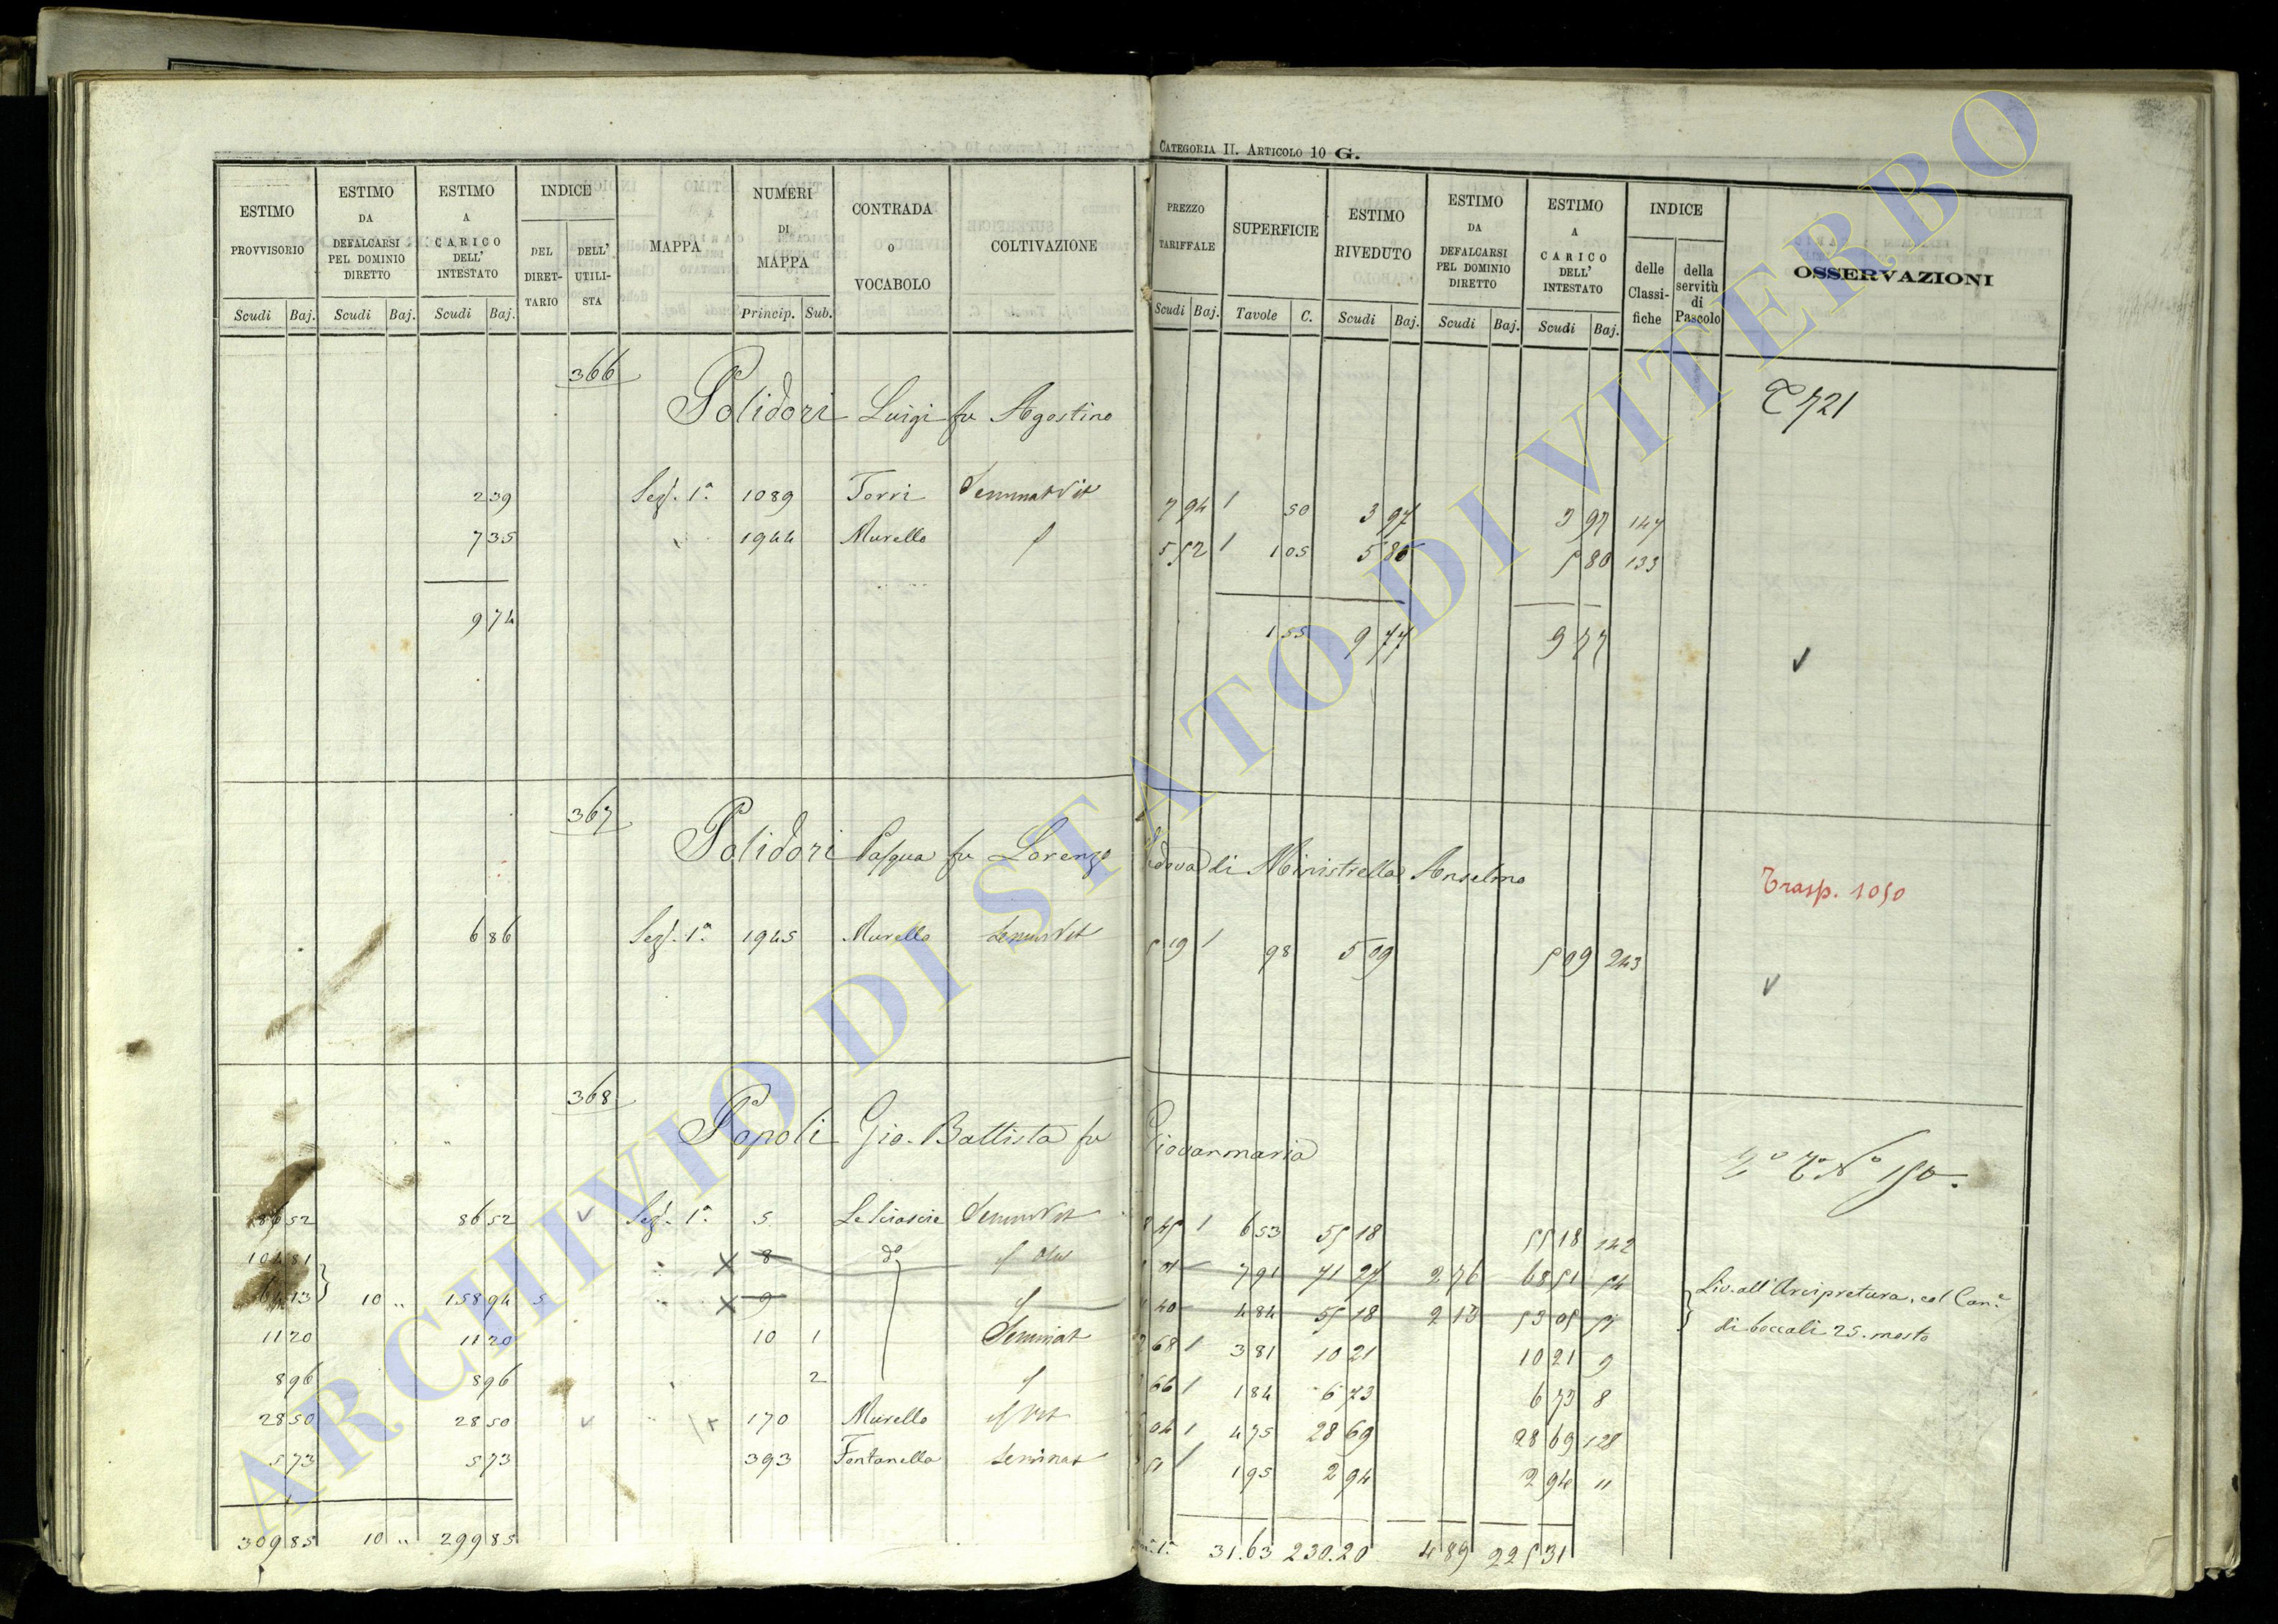 CATEGORIA II. ARTICOLO 10 G.
ESTIMO PROVVISORIO Scudi Baj.
ESTIMO DA DEFALCARSI PEL DOMINIO DIRETTO Scudi Baj.
ESTIMO A CARICO DELL' INTESTATO Scudi Baj.
INDICE DEL DIRET-TARIO DELL' UTILI-STA
MAPPA
NUMERI DI MAPPA Princip. Sub.
CONTRADA o VOCABOLO
COLTIVAZIONE
PREZZO TARIFFALE Scudi Baj.
SUPERFICIE Tavole C.
ESTIMO RIVEDUTO Scudi Baj.
ESTIMO DA DEFALCARSI PEL DOMINIO DIRETTO Scudi Baj.
ESTIMO A CARICO DELL' INTESTATO Scudi Baj.
INDICE delle Classi-fiche della servitù di Pascolo
OSSERVAZIONI
366
Polidori Luigi fu Agostino
721
2 39 Sez. 1ª 1089 Torri Seminat Vit 7 94 1 50 3 97 3 97 147
7 35 " 1944 Murello 5 52 1 1 05 5 80 5 80 133
9 74 1 55 9 77 9 77
367
Polidori Pasqua fu Lorenzo vedova di Ministrella Anselmo
Trasp. 1050
6 86 Sez. 1ª 1945 Murello Semin Vit 5 19 1 98 5 09 5 09 243
368
Popoli Gio. Battista fu Giovanmaria
Nº 150.
86 52 86 52 Sez. 1ª 5 Seminat Vit 8 45 1 6 53 55 18 55 18 142
104 81 8 dº Oliv 7 91 71 27 2 76 68 51 54
64 13 10 " 158 94 5 " 9 4 84 55 18 2 13 53 05 51
Liv. all' Arcipretura, col Can.e
di boccali 25. mosto
11 20 11 20 10 1 Seminat 68 1 3 81 10 21 10 21 9
8 96 8 96 2 66 1 1 84 6 73 6 73 8
28 50 28 50 " 170 Murello Vit 04 1 4 75 28 69 28 69 128
5 73 5 73 393 Fontanella Seminat 51 1 1 95 2 94 2 94 11
309 85 10 " 299 85 31.63 230.20 4 89 225 31
ARCHIVIO DI STATO DI VITERBO